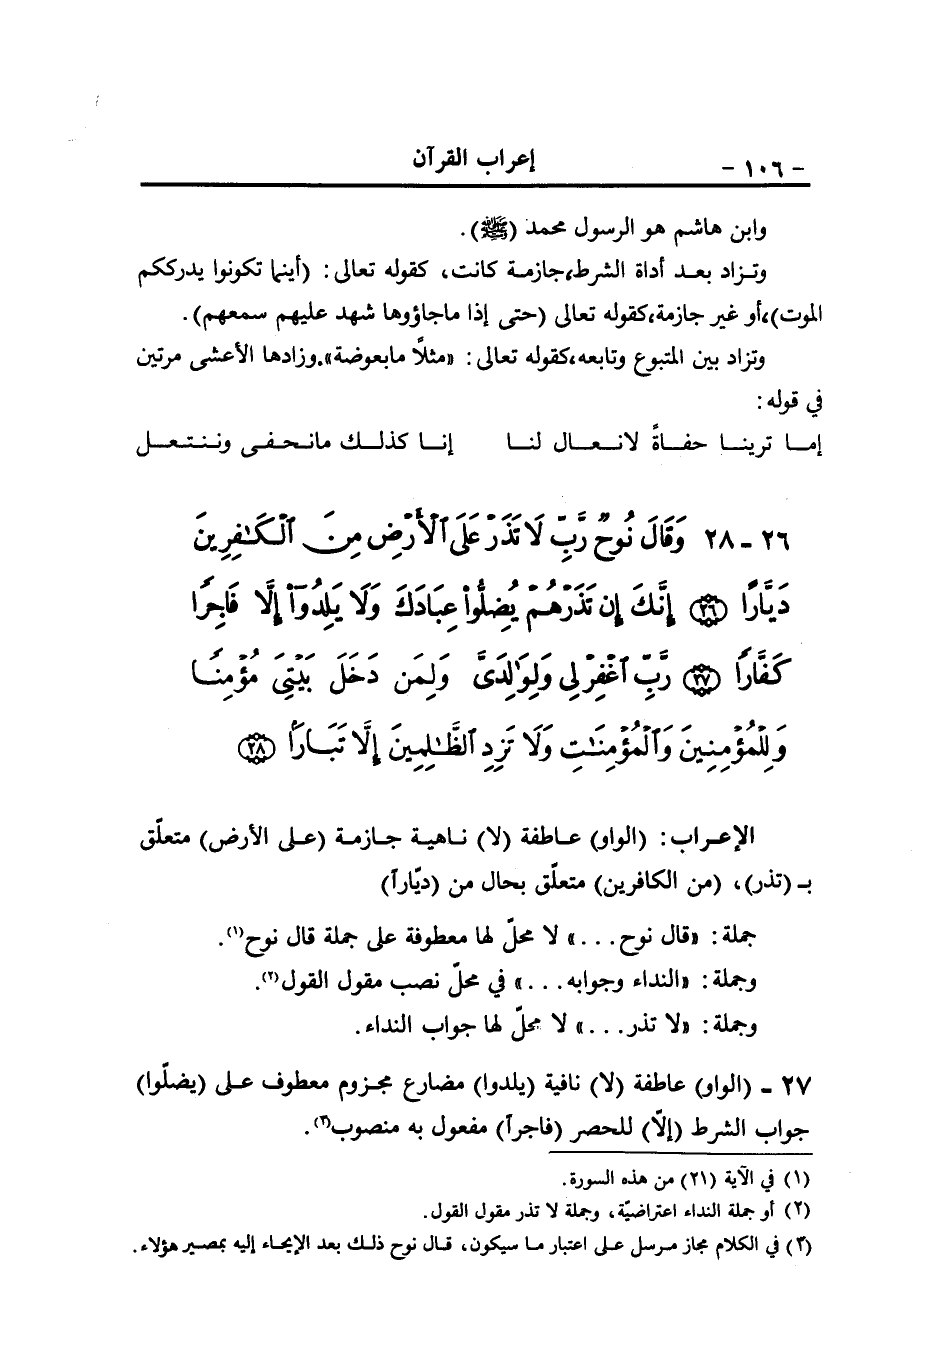 - ١٠٦ - إعراب القرآن
وابن هاشم هو الرسول محمد (ﷺ).
وتزاد بعد أداة الشرط،جازمة كانت، كقوله تعالى: (أينما تكونوا يدرككم
الموت)،أو غير جازمة،كقوله تعالى (حتى إذا ماجاؤوها شهد عليهم سمعهم).
وتزاد بين المتبوع وتابعه،كقوله تعالى: «مثلاً مابعوضة».وزادها الأعشى مرتين
في قوله:
إما ترينا حفاةً لانعال لنا إنا كذلك مانحفى وننتعل
٢٦ - ٢٨ وَقَالَ نُوحٌ رَّبِّ لَا تَذَرْ عَلَى ٱلْأَرْضِ مِنَ ٱلْكَـٰفِرِينَ
دَيَّارًا ﴿٢٦﴾ إِنَّكَ إِن تَذَرْهُمْ يُضِلُّوا۟ عِبَادَكَ وَلَا يَلِدُوٓا۟ إِلَّا فَاجِرًا
كَفَّارًا ﴿٢٧﴾ رَّبِّ ٱغْفِرْ لِى وَلِوَٰلِدَىَّ وَلِمَن دَخَلَ بَيْتِىَ مُؤْمِنًا
وَلِلْمُؤْمِنِينَ وَٱلْمُؤْمِنَـٰتِ وَلَا تَزِدِ ٱلظَّـٰلِمِينَ إِلَّا تَبَارًا ﴿٢٨﴾
الإعراب: (الواو) عاطفة (لا) ناهية جازمة (على الأرض) متعلّق
بـ (تذر)، (من الكافرين) متعلّق بحال من (ديّاراً)
جملة: «قال نوح...» لا محلّ لها معطوفة على جملة قال نوح(١).
وجملة: «النداء وجوابه...» في محلّ نصب مقول القول(٢).
وجملة: «لا تذر...» لا محلّ لها جواب النداء.
٢٧ - (الواو) عاطفة (لا) نافية (يلدوا) مضارع مجزوم معطوف على (يضلّوا)
جواب الشرط (إلّا) للحصر (فاجراً) مفعول به منصوب(٣).
(١) في الآية (٢١) من هذه السورة.
(٢) أو جملة النداء اعتراضيّة، وجملة لا تذر مقول القول.
(٣) في الكلام مجاز مرسل على اعتبار ما سيكون، قال نوح ذلك بعد الإيحاء إليه بمصير هؤلاء.